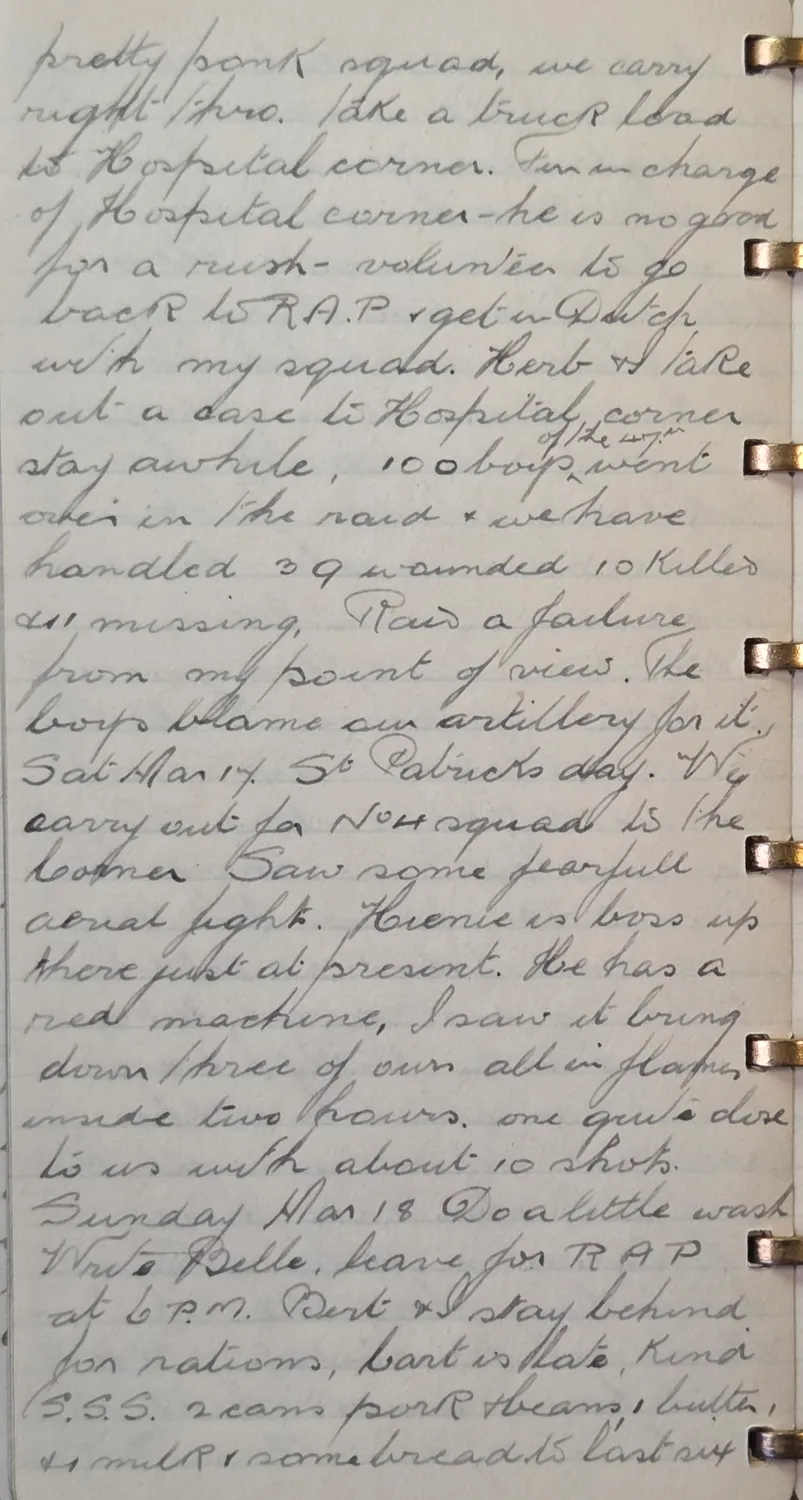 pretty punk squad, we carry
right thro. Take a truck load
to Hospital corner. in charge
of Hospital corner - he is no good
for a rush - volunteer to go
back to R.A.P & get in Dutch
with my squad. Herb & I take
out a case to Hospital corner
stay awhile, 100 boys of the 47th went
over in the raid & we have
handled 39 wounded 10 killed
& 11 missing. Raid a failure
from my point of view. The
boys blame our artillery for it.
Sat Mar 17. St Patricks day. We
carry out for No 4 squad to the
corner Saw some fearfull
aerial fights. Hienie is boss up
there just at present. He has a
red machine, I saw it bring
down three of ours all in flames
inside two hours. one quite close
to us with about 10 shots.
Sunday Mar 18 Do a little wash
Write Belle, leave for R A P
at 6 P.M. Bert & I stay behind
for rations, cart is late, Kind
S.S.S. 2 cans pork & beans, 1 butter,
& 1 milk & some bread to last six